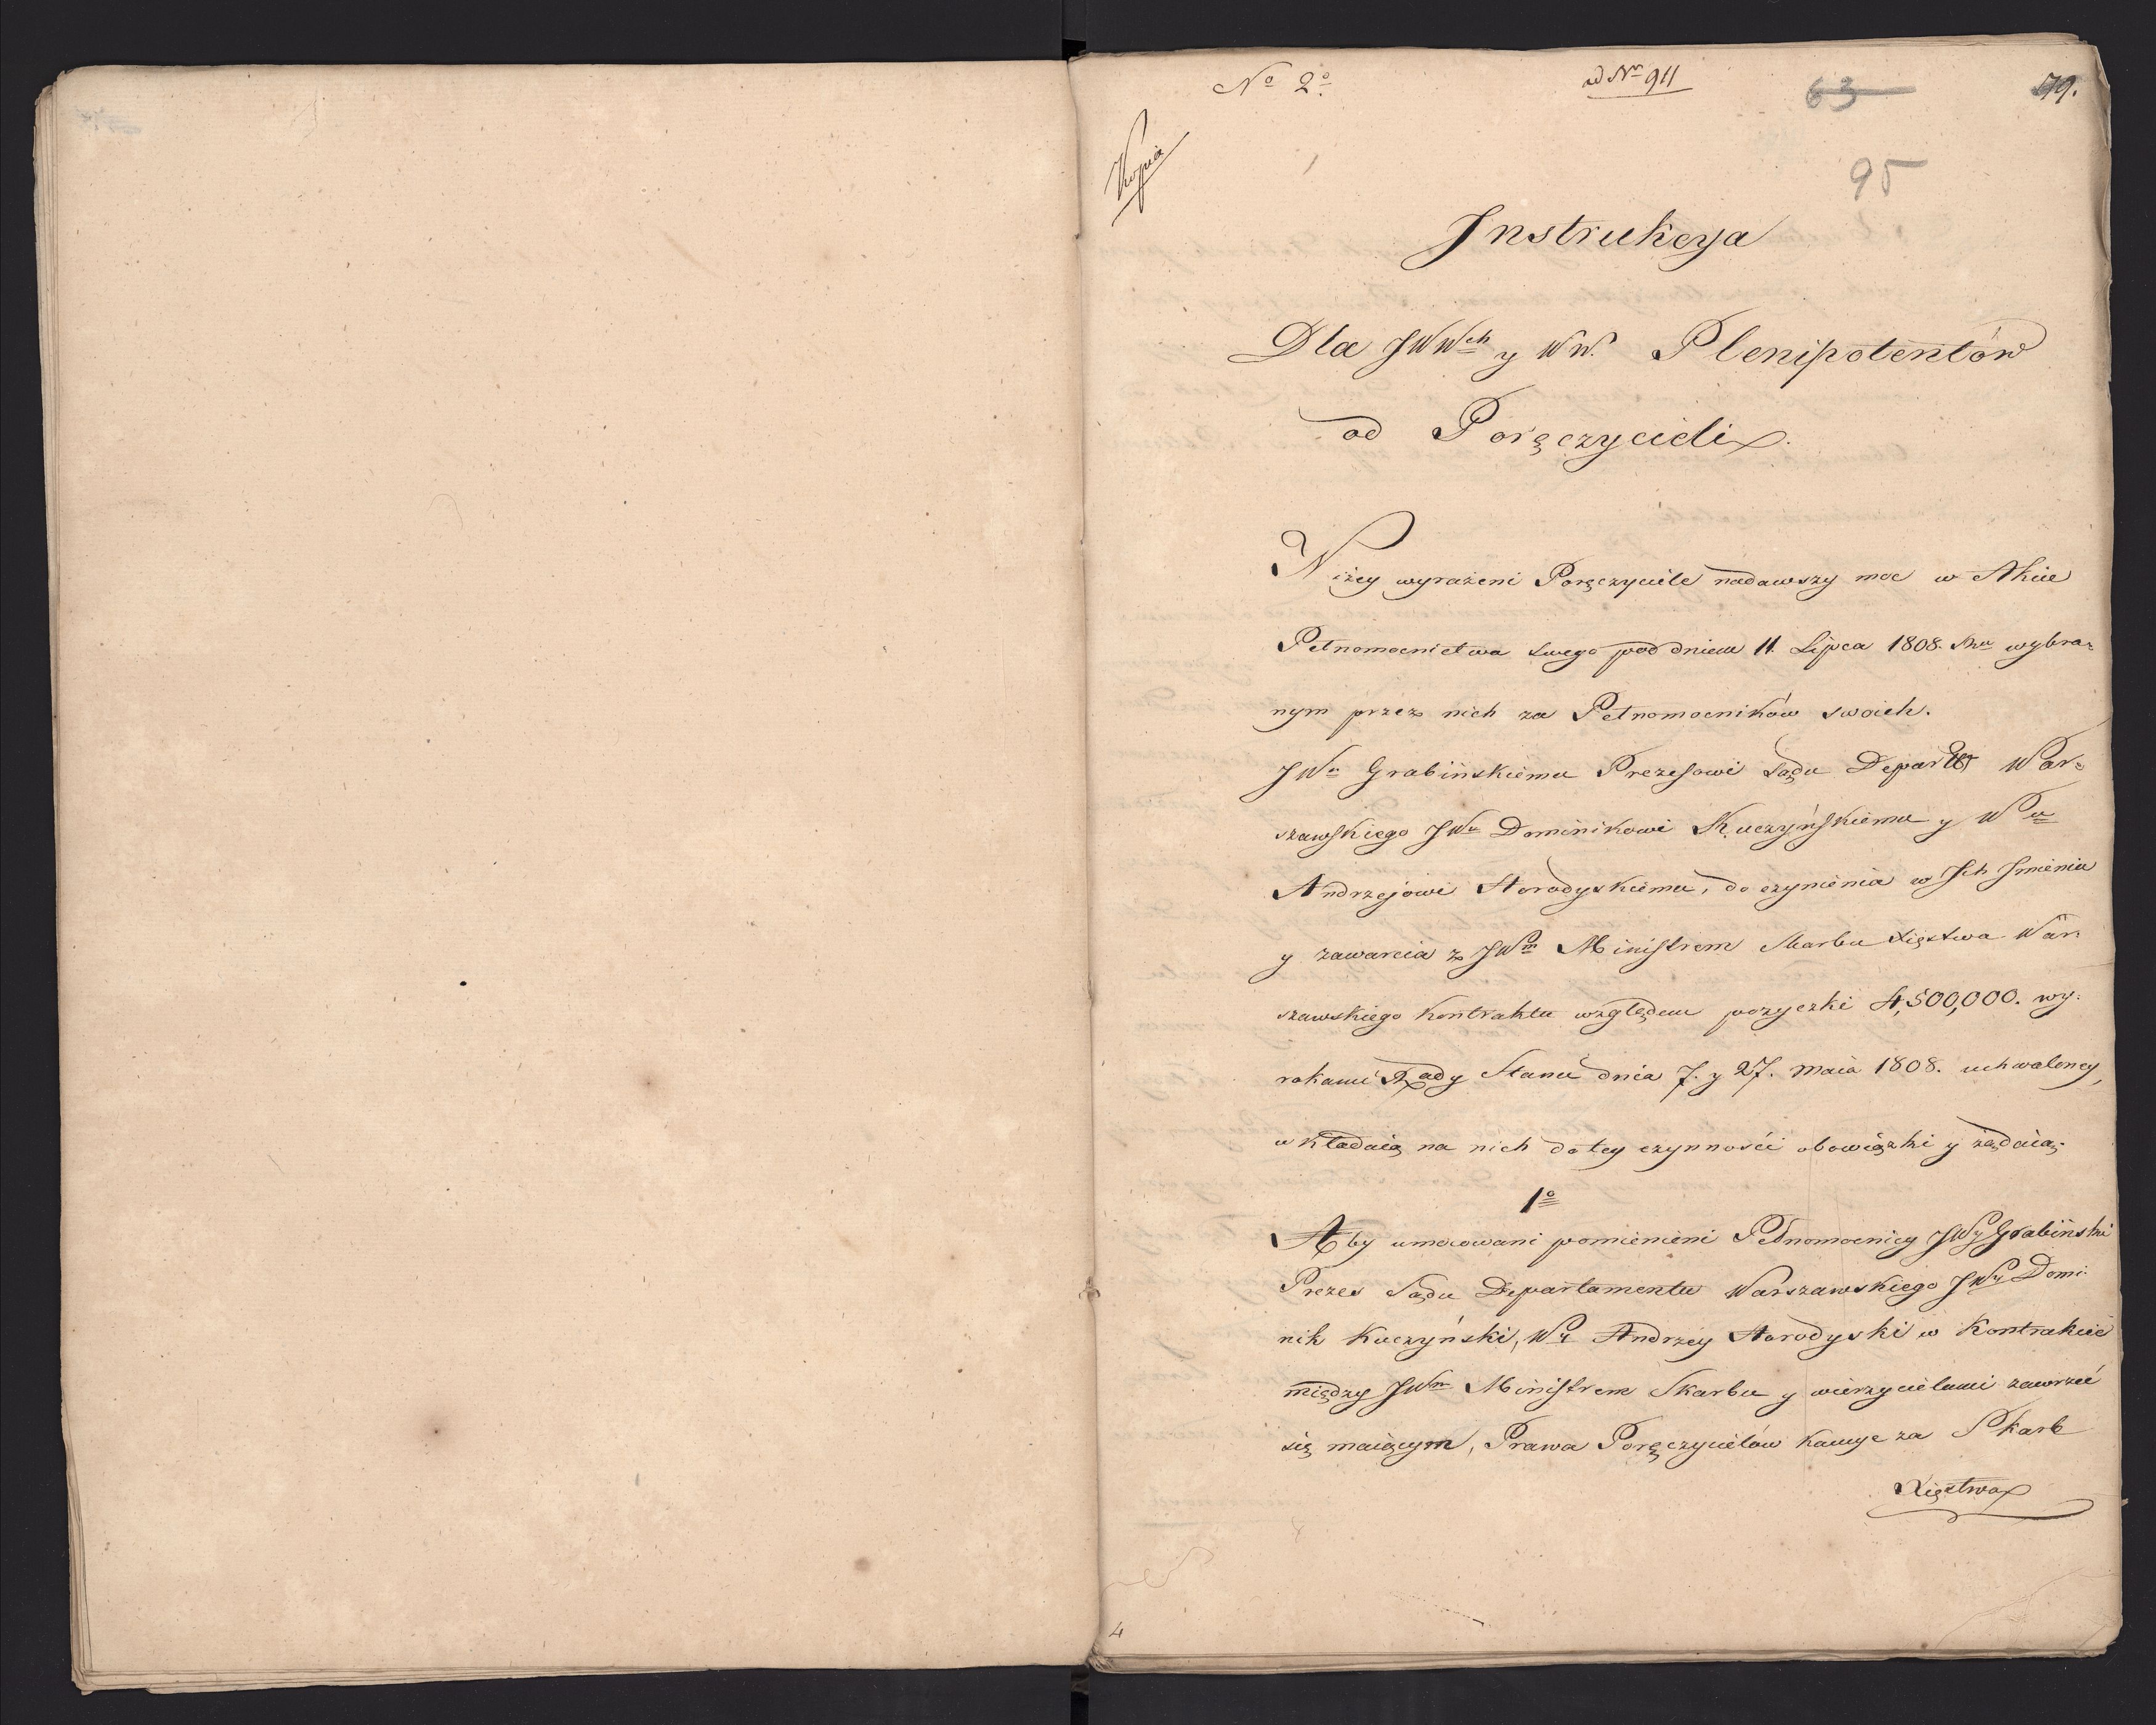 No 2o
ad Nr 911
63
79.
95
Kopia
Instrukcya
Dla JWWch y WW. Plenipotentów
od Poręczycieli.
Niżey wyrażeni Poręczyciele nadawszy moc w Akcie
Pełnomocnictwa swego pod dniem 11. Lipca 1808. Rku wybra=
nym przez nich za Pełnomocników swoich.
JWu Grabińskiemu Prezesowi Sądu Departtu War=
szawskiego JWu Dominikowi Kuczyńskiemu y Wu
Andrzejowi Horodyskiemu, do czynienia w Ich Imieniu
y zawarcia z JWm Ministrem Skarbu Xięstwa War=
szawskiego Kontraktu względem pożyczki 4,500,000. wy=
rokami Rady Stanu dnia 7. y 27. Maia 1808. uchwaloney,
wkładaią na nich do tey czynności obowiązki y żądaią.
1o
Aby umocowani pomienieni Pełnomocnicy JWy Grabiński
Prezes Sądu Departamentu Warszawskiego JWy Domi=
nik Kuczyński, Wy Andrzey Horodyski w Kontrakcie
między JWm Ministrem Skarbu y wierzycielami zawrzeć
się maiącym, Prawa Poręczycielów za Skarb
Xięstwa
4